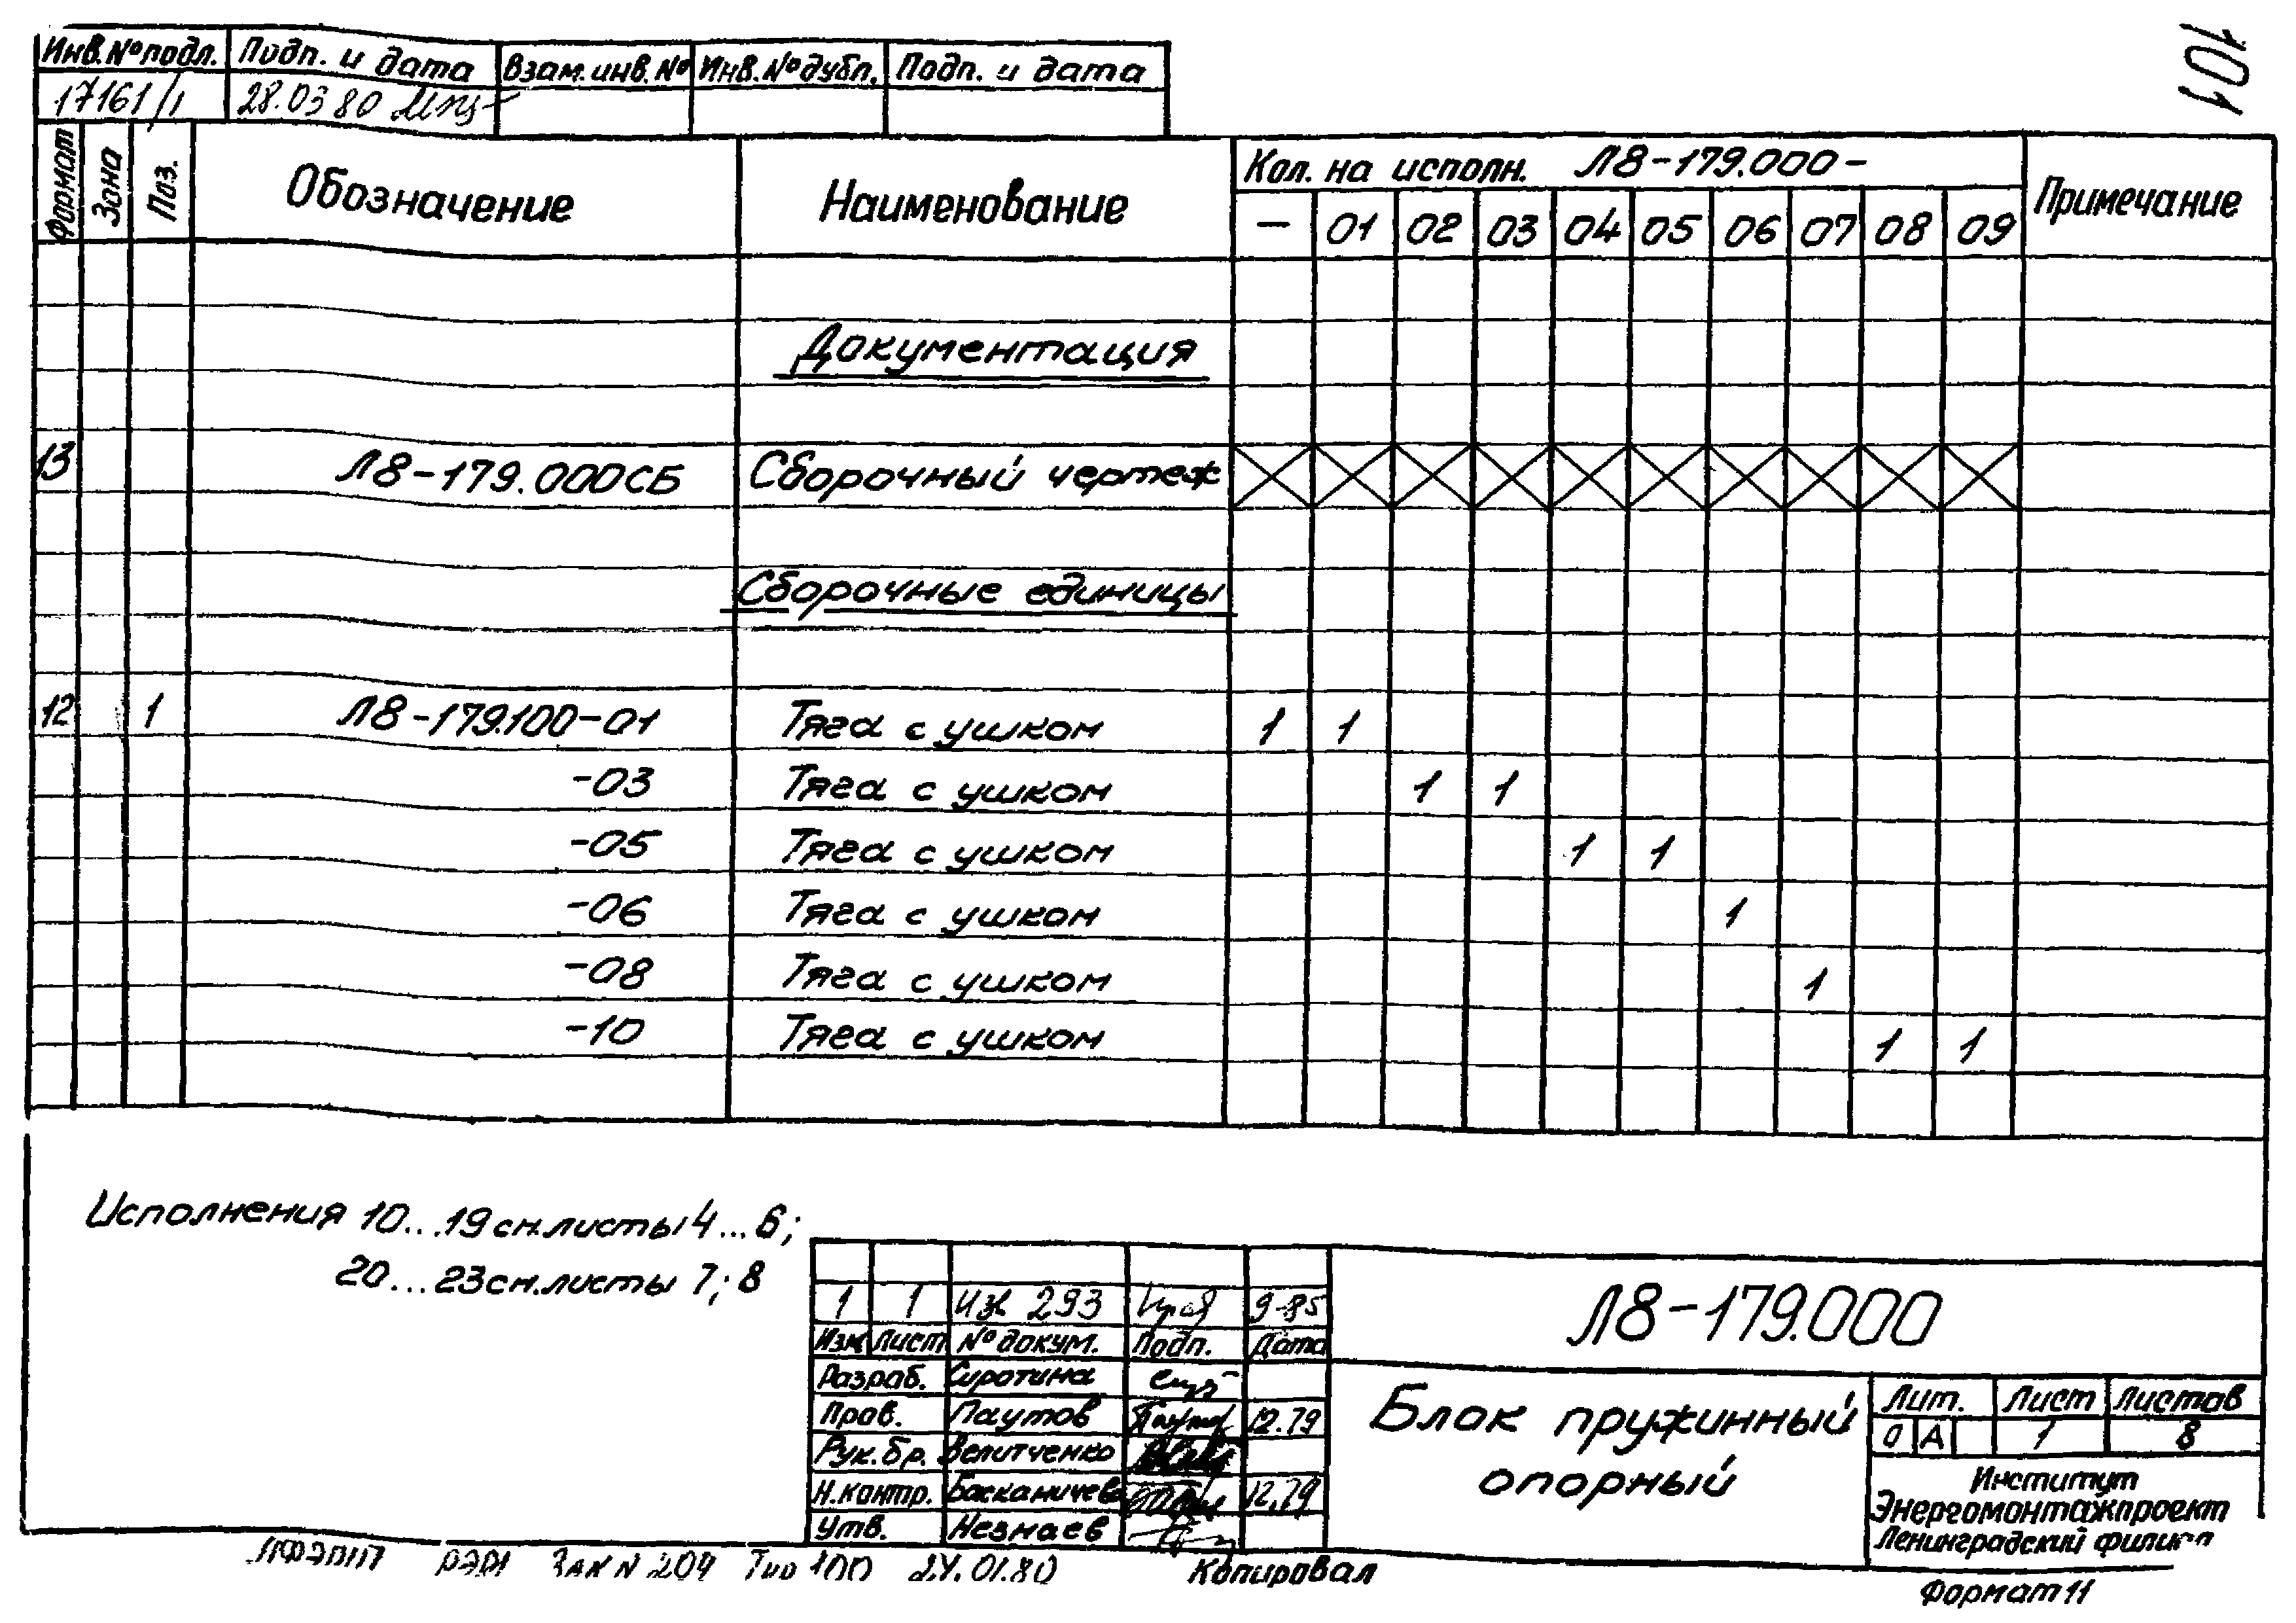 101
Инв.№подл. Подп. и дата Взам.инв.№ Инв.№дубл. Подп. и дата
17161/1 28.03 80
Формат Зона Поз. Обозначение Наименование Кол. на исполн. Л8-179.000- Примечание
— 01 02 03 04 05 06 07 08 09
Документация
13 Л8-179.000СБ Сборочный чертеж
Сборочные единицы
12 1 Л8-179.100-01 Тяга с ушком 1 1
-03 Тяга с ушком 1 1
-05 Тяга с ушком 1 1
-06 Тяга с ушком 1
-08 Тяга с ушком 1
-10 Тяга с ушком 1 1
Исполнения 10...19 см.листы 4...6;
20...23 см.листы 7;8
1 1 изв 293 9-85
Изм Лист № докум. Подп. Дата
Разраб. Сиротина
Пров. Паутов 12.79
Рук.бр. Велитченко
Н.контр. 12.79
Утв. Незнаев
Л8-179.000
Блок пружинный
опорный
Лит. Лист Листов
О А 1 8
Институт
Энергомонтажпроект
Ленинградский филиал
ЛФЭМП РЭМ Зак N 204 Тир 100 24.01.80 Копировал
Формат 11